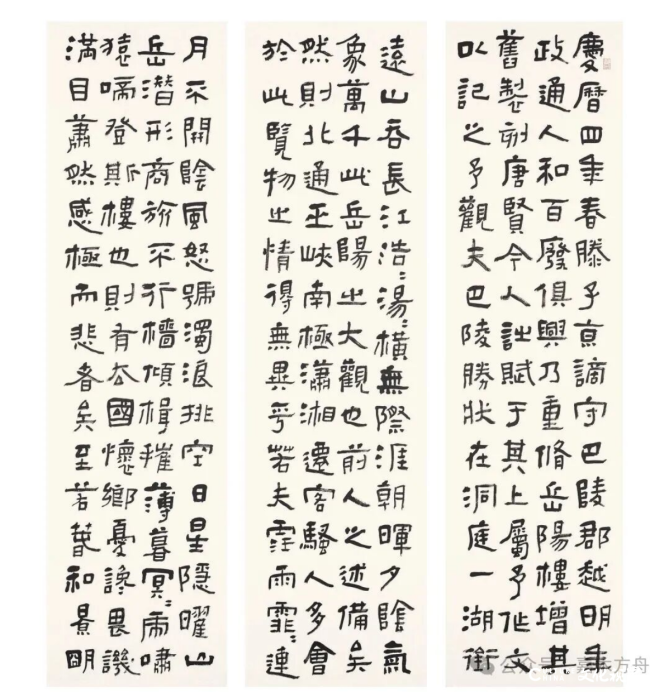 慶曆四年春滕子京謫守巴陵郡越明年
政通人和百廢俱興乃重脩岳陽樓增其
舊製刻唐賢今人詩賦于其上屬予作文
以記之予觀夫巴陵勝狀在洞庭一湖銜
遠山吞長江浩〻湯〻橫無際涯朝暉夕陰氣
象萬千此岳陽之大觀也前人之述備矣
然則北通巫峽南極瀟湘遷客騷人多會
於此覽物之情得無異乎若夫霪雨霏〻連
月不開陰風怒號濁浪排空日星隱曜山
岳潛形商旅不行檣傾楫摧薄暮冥〻虎嘯
猿啼登斯樓也則有去國懷鄉憂讒畏譏
滿目蕭然感極而悲者矣至若春和景明
公众号
方舟